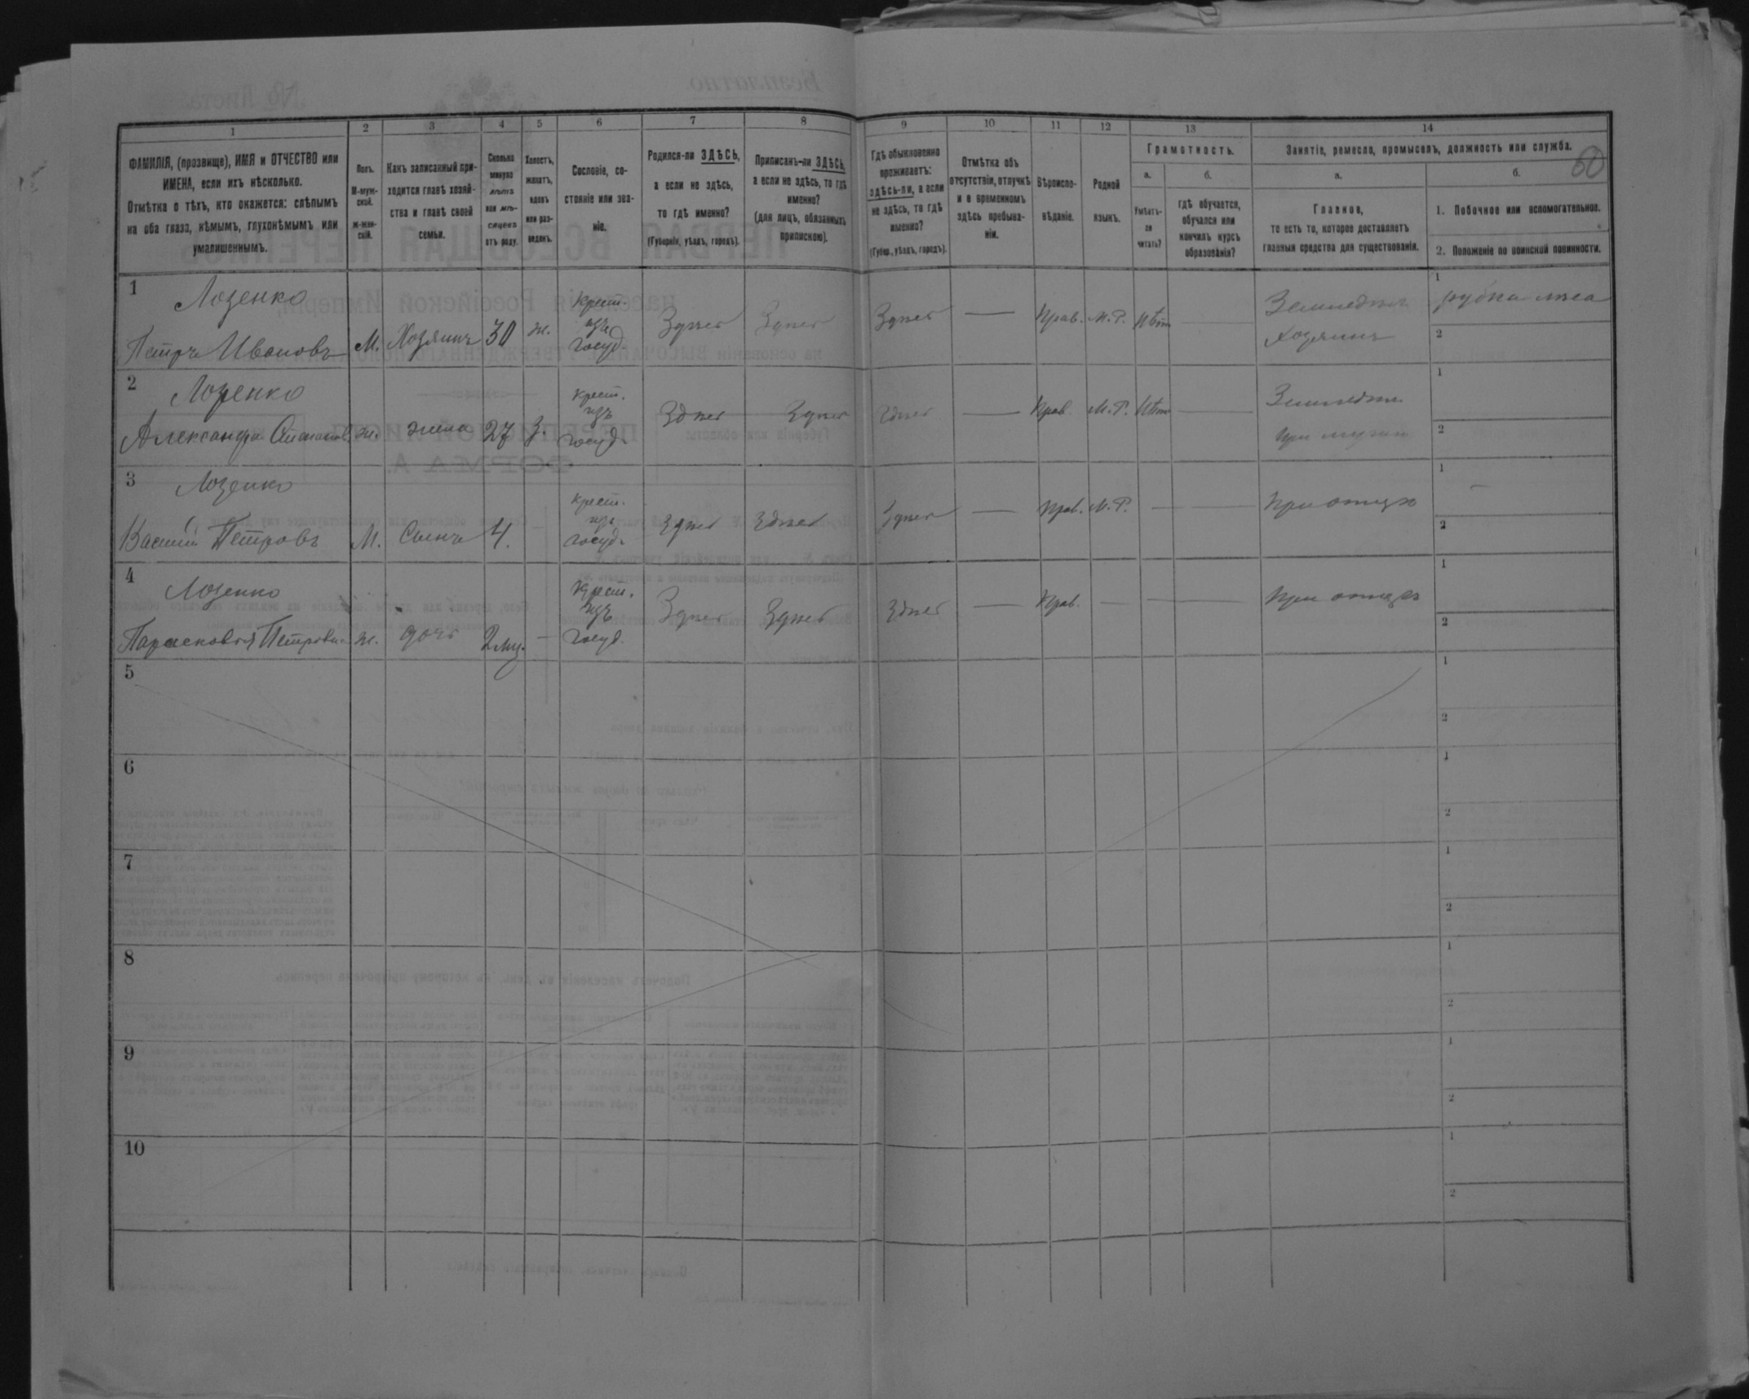 1 2 3 4 5 6 7 8 9 10 11 12 13 14
60
ФАМИЛІЯ, (прозвище), ИМЯ и ОТЧЕСТВО или
ИМЕНА, если ихъ нѣсколько.
Отмѣтка о тѣхъ, кто окажется: слѣпымъ
на оба глаза, нѣмымъ, глухонѣмымъ или
умалишеннымъ.
Полъ.
М-муж-
ской.
ж-жен-
скій.
Какъ записанный при-
ходится главѣ хозяй-
ства и главѣ своей
семьи.
Сколько
минуло
лѣтъ
или мѣ-
сяцевъ
отъ роду.
Холостъ,
женатъ,
вдовъ
или раз-
веденъ.
Сословіе, со-
стояніе или зва-
ніе.
Родился-ли ЗДѢСЬ,
а если не здѣсь,
то гдѣ именно?
(Губернія, уѣздъ, городъ).
Приписанъ-ли ЗДѢСЬ,
а если не здѣсь, то гдѣ
именно?
(для лицъ, обязанныхъ
припискою).
Гдѣ обыкновенно
проживаетъ:
здѣсь-ли, а если
не здѣсь, то гдѣ
именно?
(Губер., уѣздъ, городъ).
Отмѣтка объ
отсутствіи, отлучкѣ
и о временномъ
здѣсь пребыва-
ніи.
Вѣроиспо-
вѣданіе.
Родной
языкъ.
Грамотность.
а.
Умѣетъ-
ли
читать?
б.
гдѣ обучается,
обучался или
кончилъ курсъ
образованія?
Занятіе, ремесло, промыселъ, должность или служба.
а.
Главное,
то есть то, которое доставляетъ
главныя средства для существованія.
б.
1. Побочное или вспомогательное.
2. Положеніе по воинской повинности.
1 Лозенко
Петръ Ивановъ М. Хозяинъ 30 ж. Крест. изъ госуд. Здѣсь Здѣсь Здѣсь — Прав. М.Р. Нѣт — Земледѣл. Хозяинъ 1 рубка лѣса 2
2 Лозенко
Александра ж. жена 27 з. Крест. изъ госуд. Здѣсь Здѣсь Здѣсь — Прав. М.Р. Нѣт — Земледѣл. При мужѣ 1 2
3 Лозенко
Василій Петровъ М. Сынъ 4. Крест. изъ госуд. Здѣсь Здѣсь Здѣсь — Прав. М.Р. — — При отцѣ 1 — 2
4 Лозенко
Парасковья Петрова ж. дочь 2 мц. — Крест. изъ госуд. Здѣсь Здѣсь Здѣсь — Прав. — — При отцѣ 1 2
5 1 2
6 1 2
7 1 2
8 1 2
9 1 2
10 1 2